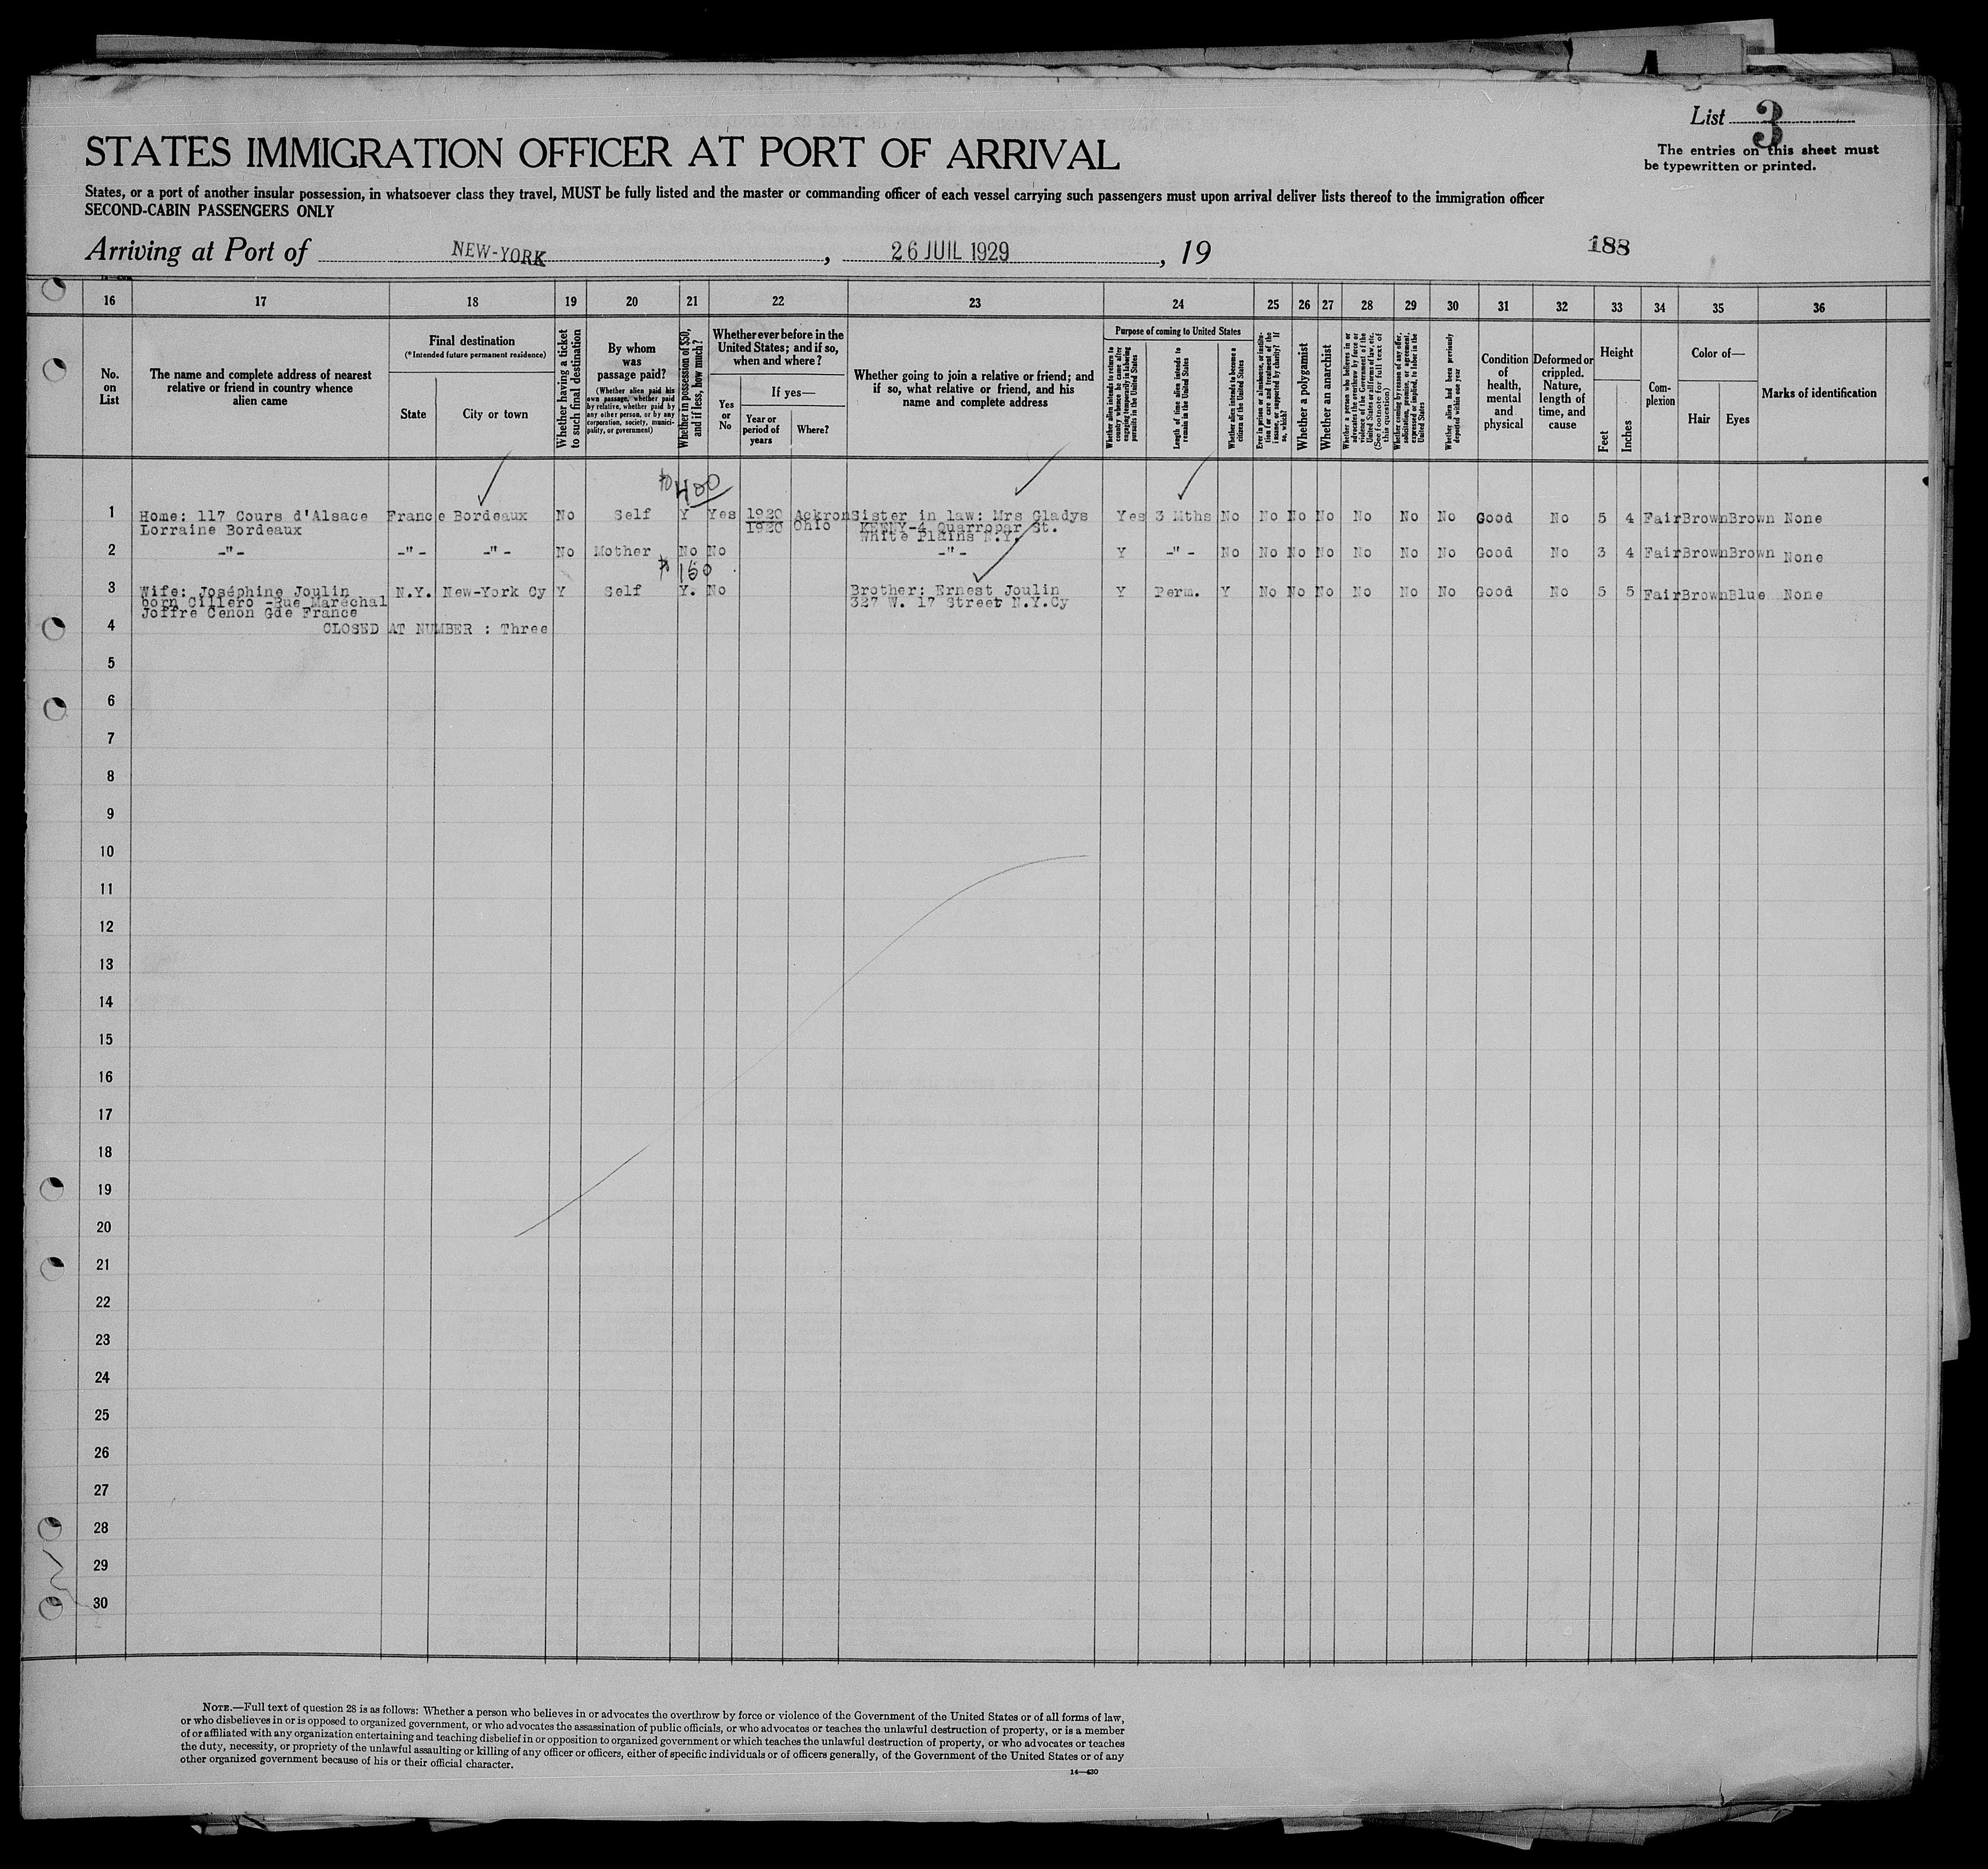 List 3
The entries on this sheet must
be typewritten or printed.
STATES IMMIGRATION OFFICER AT PORT OF ARRIVAL
States, or a port of another insular possession, in whatsoever class they travel, MUST be fully listed and the master or commanding officer of each vessel carrying such passengers must upon arrival deliver lists thereof to the immigration officer
SECOND-CABIN PASSENGERS ONLY
Arriving at Port of NEW-YORK, 26 JUIL 1929, 19
188
16 17 18 19 20 21 22 23 24 25 26 27 28 29 30 31 32 33 34 35 36
No.
on
List
The name and complete address of nearest
relative or friend in country whence
alien came
Final destination
(*Intended future permanent residence)
State
City or town
Whether having a ticket
to such final destination
By whom
was
passage paid?
(Whether alien paid his
own passage, whether paid
by relative, whether paid by
any other person, or by any
corporation, society, munici-
pality, or government)
Whether in possession of $50,
and if less, how much?
Whether ever before in the
United States; and if so,
when and where?
Yes
or
No
If yes—
Year or
period of
years
Where?
Whether going to join a relative or friend; and
if so, what relative or friend, and his
name and complete address
Purpose of coming to United States
Whether alien intends to return to
country whence he came after
engaging temporarily in laboring
pursuits in the United States
Length of time alien intends to
remain in the United States
Whether alien intends to become a
citizen of the United States
Ever in prison or almshouse, or institu-
tion for care and treatment of the
insane, or supported by charity? If
so, which?
Whether a polygamist
Whether an anarchist
Whether a person who believes in or
advocates the overthrow by force or
violence of the Government of the
United States or all forms of law, etc.
(See footnote for full text of
this question)
Whether coming by reason of any offer,
solicitation, promise, or agreement,
expressed or implied, to labor in the
United States
Whether alien had been previously
deported within one year
Condition
of
health,
mental
and
physical
Deformed or
crippled.
Nature,
length of
time, and
cause
Height
Feet
Inches
Com-
plexion
Color of—
Hair
Eyes
Marks of identification
400
1 Home: 117 Cours d'Alsace France Bordeaux No Self Y Yes 1920 Ackron Sister in law: Mrs Gladys Yes 3 Mths No No No No No No No Good No 5 4 Fair Brown Brown None
Lorraine Bordeaux 1920 Ohio KENNY-4 Quarropar St.
White Plains N.Y.
2 -"- -"- -"- No Mother No No -"- Y -"- No No No No No No No Good No 3 4 Fair Brown Brown None
150
3 Wife: Joséphine Joulin N.Y. New-York Cy Y Self Y. No Brother: Ernest Joulin Y Perm. Y No No No No No No Good No 5 5 Fair Brown Blue None
born Cillero -Rue Maréchal 327 W. 17 Street N.Y.Cy
Joffre Cenon Gde France
4 CLOSED AT NUMBER : Three
5
6
7
8
9
10
11
12
13
14
15
16
17
18
19
20
21
22
23
24
25
26
27
28
29
30
NOTE.—Full text of question 28 is as follows: Whether a person who believes in or advocates the overthrow by force or violence of the Government of the United States or of all forms of law,
or who disbelieves in or is opposed to organized government, or who advocates the assassination of public officials, or who advocates or teaches the unlawful destruction of property, or is a member
of or affiliated with any organization entertaining and teaching disbelief in or opposition to organized government or which teaches the unlawful destruction of property, or who advocates or teaches
the duty, necessity, or propriety of the unlawful assaulting or killing of any officer or officers, either of specific individuals or of officers generally, of the Government of the United States or of any
other organized government because of his or their official character.
14—430